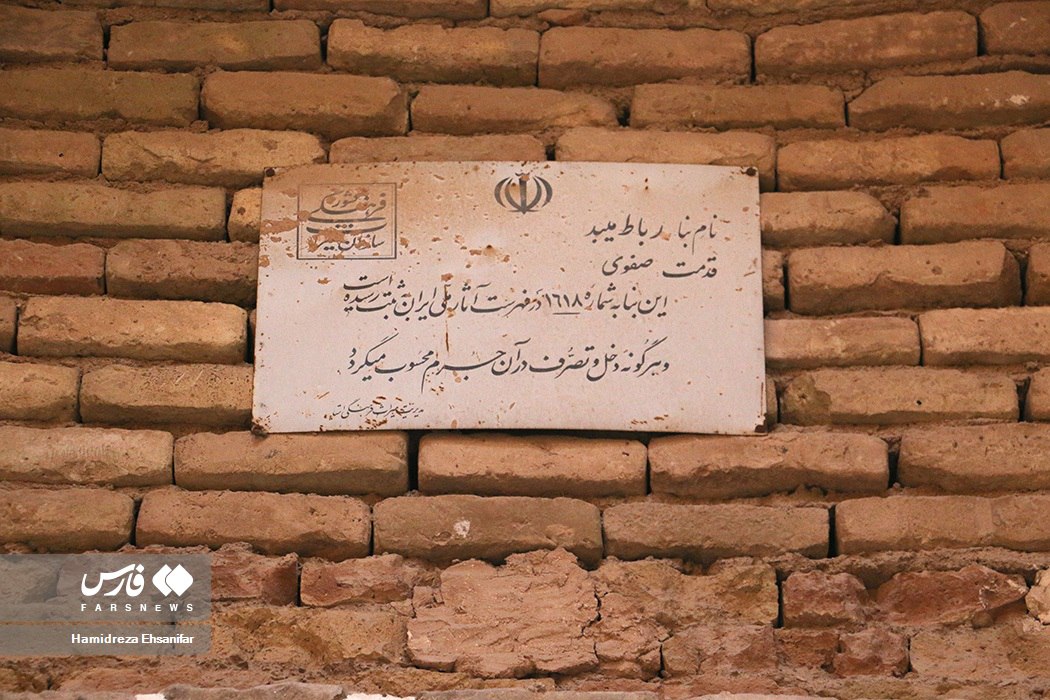 سازمان میراث
فرهنگی کشور
نام بنا رباط میبد
قدمت صفوی
این بنا به شماره ۱۶۱۸ در فهرست آثار ملی ایران به ثبت رسیده است
و هرگونه دخل و تصرف در آن جرم محسوب میگردد
مدیریت میراث فرهنگی
فارس
FARSNEWS
Hamidreza Ehsanifar